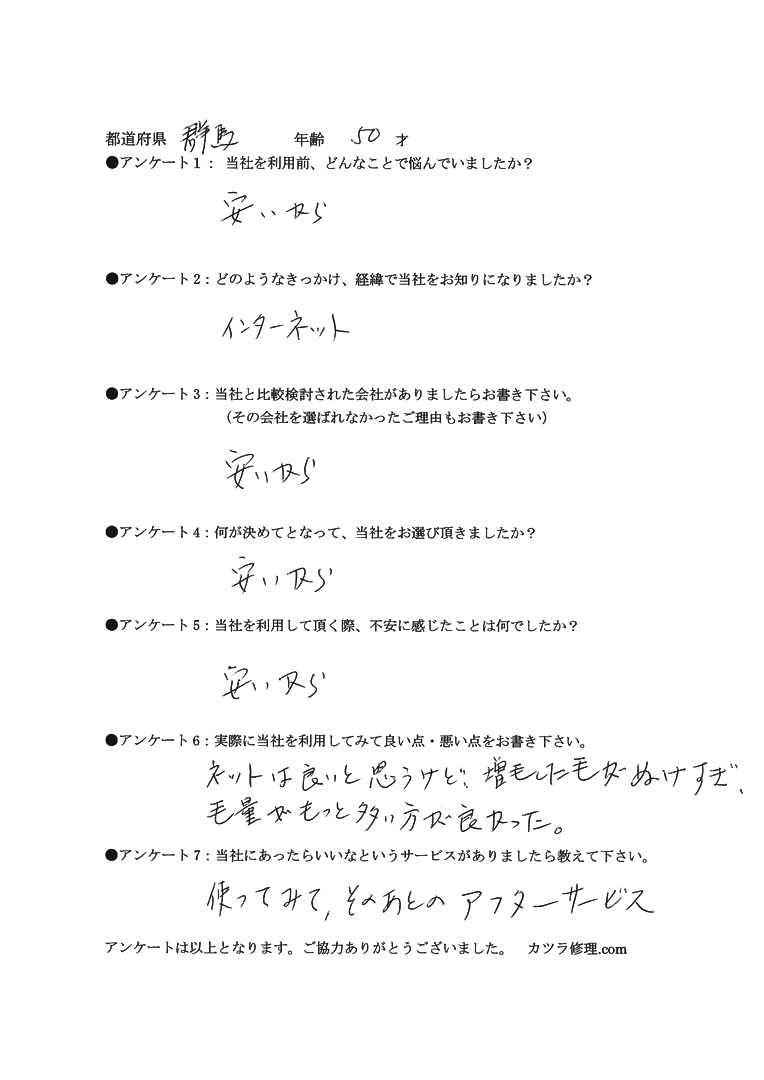 都道府県 群馬 年齢 50 才
●アンケート1： 当社を利用前、どんなことで悩んでいましたか？
安いから
●アンケート2：どのようなきっかけ、経緯で当社をお知りになりましたか？
インターネット
●アンケート3：当社と比較検討された会社がありましたらお書き下さい。
（その会社を選ばれなかったご理由もお書き下さい）
安いから
●アンケート4：何が決めてとなって、当社をお選び頂きましたか？
安いから
●アンケート5：当社を利用して頂く際、不安に感じたことは何でしたか？
安いから
●アンケート6：実際に当社を利用してみて良い点・悪い点をお書き下さい。
ネットは良いと思うけど、増毛した毛がぬけすぎ、
毛量がもっと多い方が良かった。
●アンケート7：当社にあったらいいなというサービスがありましたら教えて下さい。
使ってみて、そのあとのアフターサービス
アンケートは以上となります。ご協力ありがとうございました。 カツラ修理.com